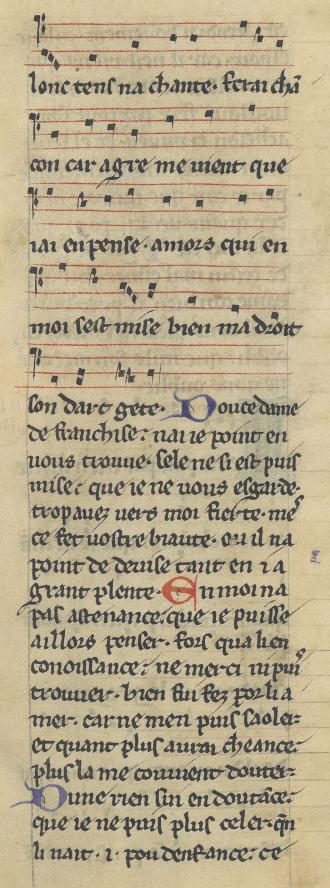 lonc tens na chante· ferai chā
con car agre me uient que
iai en pense· amors qui en
moi sest mise bien ma droit
son dart gete· Douce dame
de franchise: nai ie point en
uous trouue· sele ne si est puis
mise: que ie ne uous esgarde·
trop auez uers moi fierte· me᷑
ce fet uostre biaute· ou il na
point de deuise tant en i a
grant plente· En moi na
pas astenance: que ie puisse
aillors penser· fors qua lien
conoissance: ne merci ni puis
trouuer· bien fui fez por li a
mer· car ne men puis saoler:
et quant plus aurai cheance:
plus la me couuient douter:
Dune rien sui en doutāce:
que ie ne puis plus celer· q̄n
li nait· i· pou denfance: ce